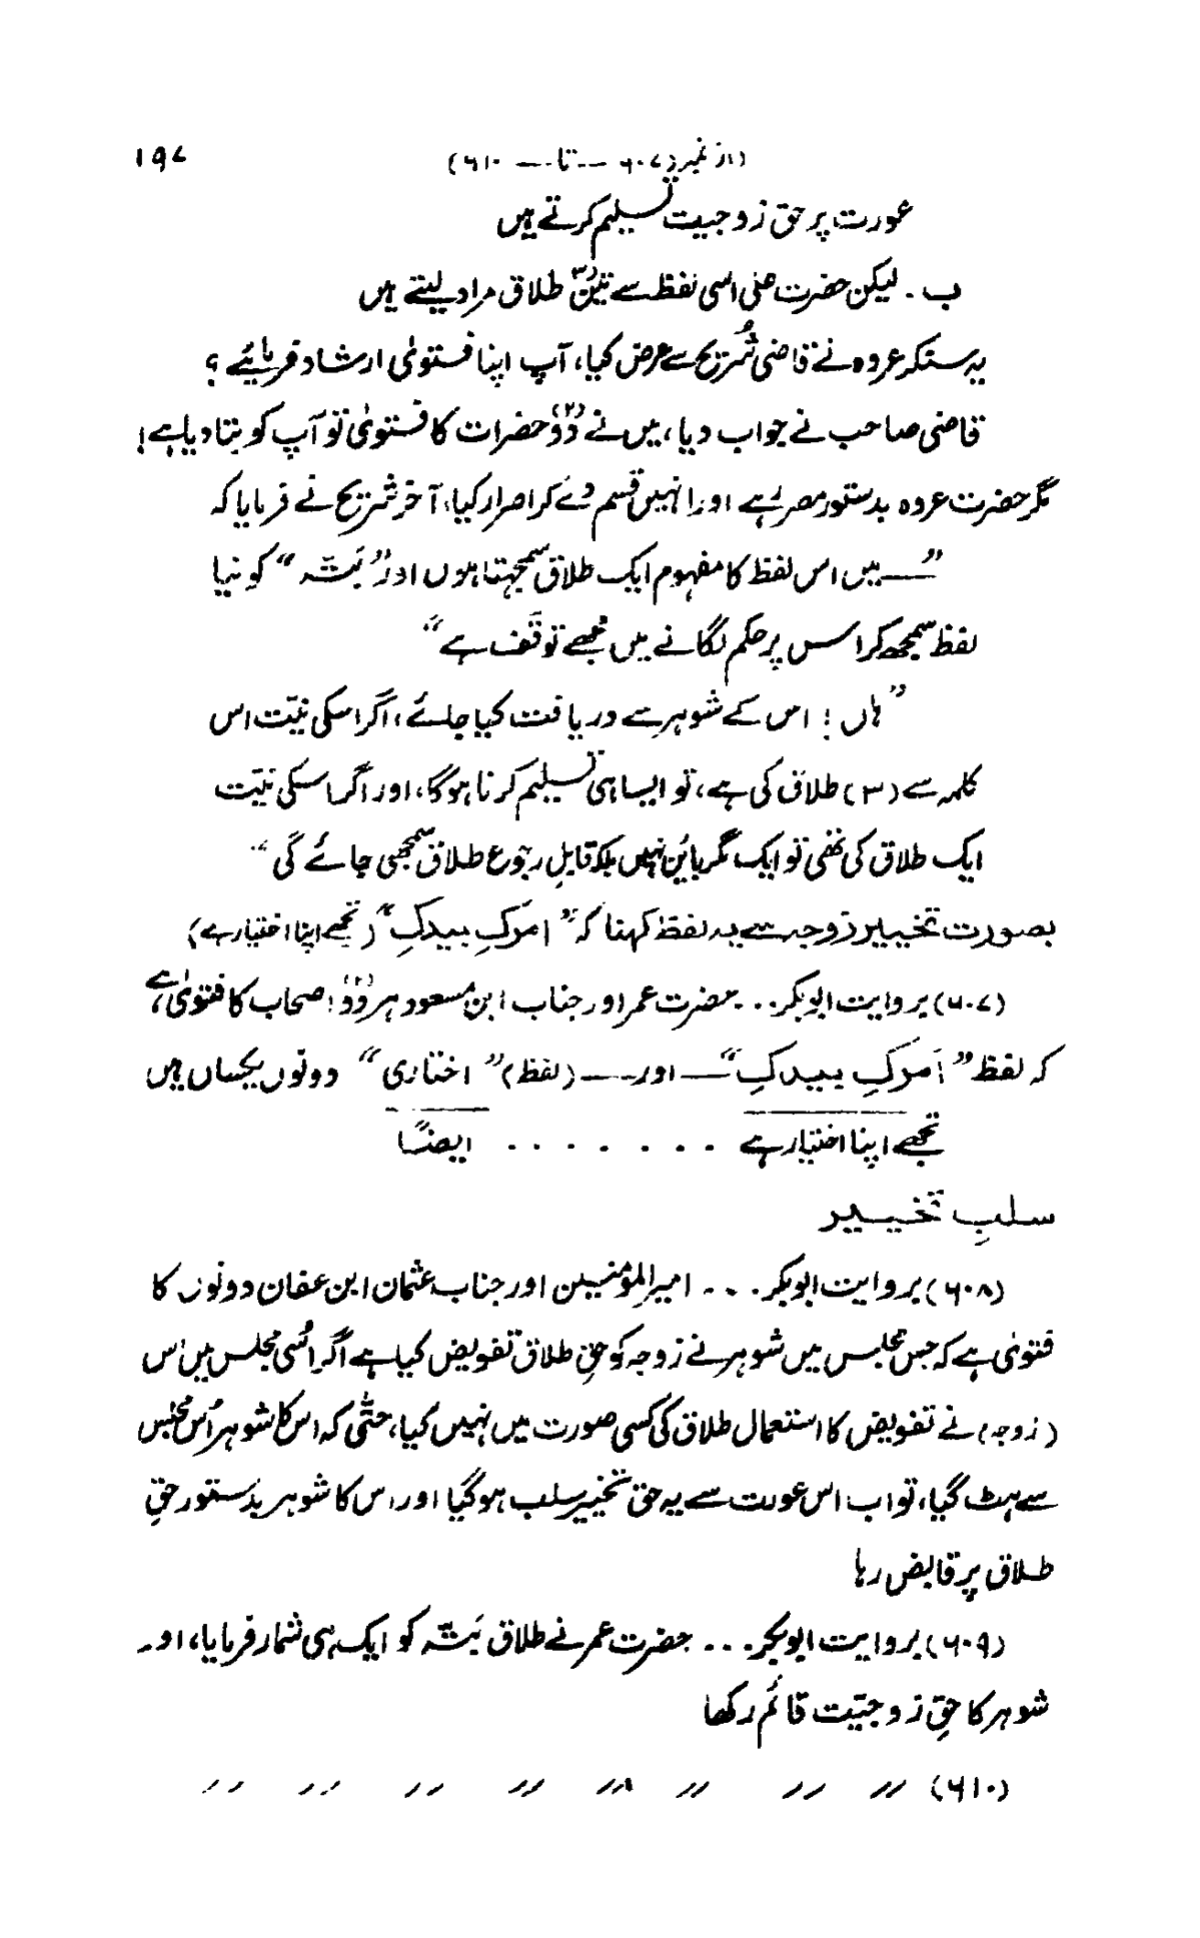 (از نمبر ۶۰۷ --- تا --- ۶۱۰) ۱۹۷
عورت پر حق زوجیت تسلیم کرتے ہیں
ب ۔ لیکن حضرت علی اسی لفظ سے تین (۳) طلاق مراد لیتے ہیں
یہ سنکر عروہ نے قاضی شُریح سے عرض کیا، آپ اپنا فتویٰ ارشاد فرمائیے ؟
قاضی صاحب نے جواب دیا، میں نے دوؔ (۲) حضرات کا فتویٰ تو آپ کو بتا دیا ہے!
مگر حضرت عروہ بدستور مصر رہے اور انہیں قسم دے کر اصرار کیا، آخر شریح نے فرمایا کہ
”—— میں اس لفظ کا مفہوم ایک طلاق سمجھتا ہوں اور ”بَتّہ“ کو نیا
لفظ سمجھ کر اس پر حکم لگانے میں مجھے توقّف ہے“
”ہاں ! اس کے شوہر سے دریافت کیا جائے، اگر اسکی نیّت اس
کلمہ سے (۳) طلاق کی ہے، تو ایسا ہی تسلیم کرنا ہوگا، اور اگر اسکی نیّت
ایک طلاق کی تھی تو ایک مگر بائن نہیں بلکہ قابلِ رجوع طلاق سمجھی جائے گی“
بصورت تخییر زوجہ سے یہ لفظ کہنا کہ ”امرکِ بیدکِ“ (تجھے اپنا اختیار ہے)
(۶۰۷) بروایت ابوبکر ... حضرت عمر اور جناب ابن مسعود ہر دوؔ (۲) اصحاب کا فتویٰ ہے،
کہ لفظ ”اَمرکِ بیدکِ“ —— اور —— (لفظ) ”اختاری“ دونوں یکساں ہیں
تجھے اپنا اختیار ہے . . . . . . . ایضًا
سلبِ تخییر
(۶۰۸) بروایت ابوبکر ... امیرالمؤمنین اور جناب عثمان ابن عفان دونوں کا
فتویٰ ہے کہ جس مجلس میں شوہر نے زوجہ کو حقِ طلاق تفویض کیا ہے اگر اُسی مجلس میں اس
(زوجہ) نے تفویض کا استعمال طلاق کی کسی صورت میں نہیں کیا، حتّٰی کہ اس کا شوہر اُس مجلس
سے ہٹ گیا، تو اب اس عورت سے یہ حق تخییر سلب ہو گیا اور اس کا شوہر بدستور حقِ
طلاق پر قابض رہا
(۶۰۹) بروایت ابوبکر ... حضرت عمر نے طلاق بَتّہ کو ایک ہی شمار فرمایا، اور
شوہر کا حقِ زوجیّت قائم رکھا
(۶۱۰) // // // // // // // //